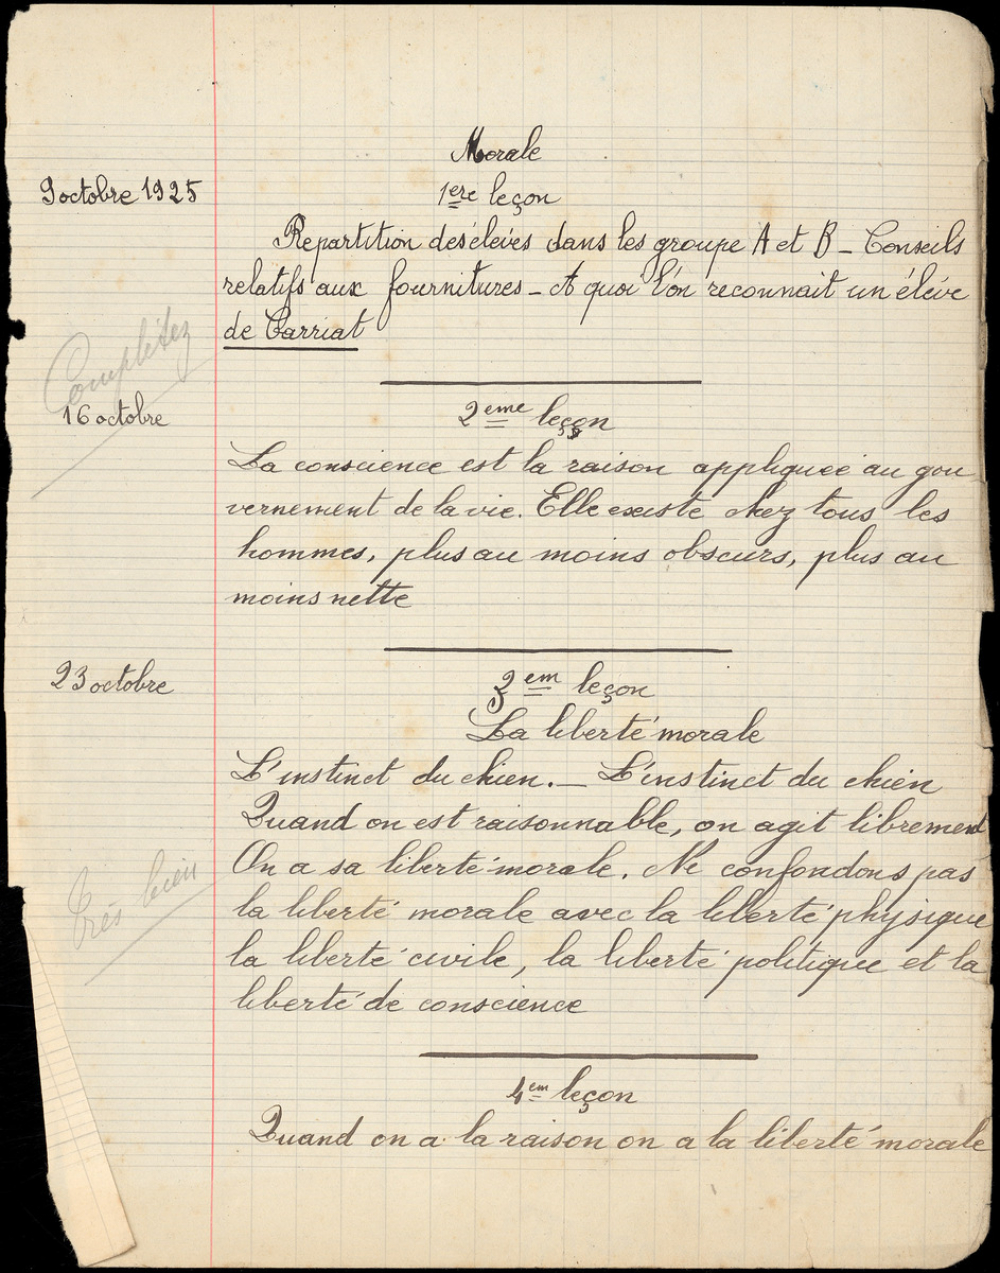 Morale
9 octobre 1925
1ere leçon
Repartition des éleves dans les groupe A et B - Conseils
relatifs aux fournitures - A quoi l'on reconnait un éléve
de Carriat
Complétez
16 octobre
2eme leçon
La conscience est la raison appliquée au gou
vernement de la vie. Elle existe chez tous les
hommes, plus au moins obscurs, plus au
moins nette
23 octobre
3em leçon
La liberté morale
L'instinct du chien. - L'instinct du chien
Quand on est raisonnable, on agit librement
On a sa liberté morale. Ne confondons pas
la liberté morale avec la liberté physique
la liberté civile, la liberté politique et la
liberté de conscience
Très bien
4em leçon
Quand on a la raison on a la liberté morale